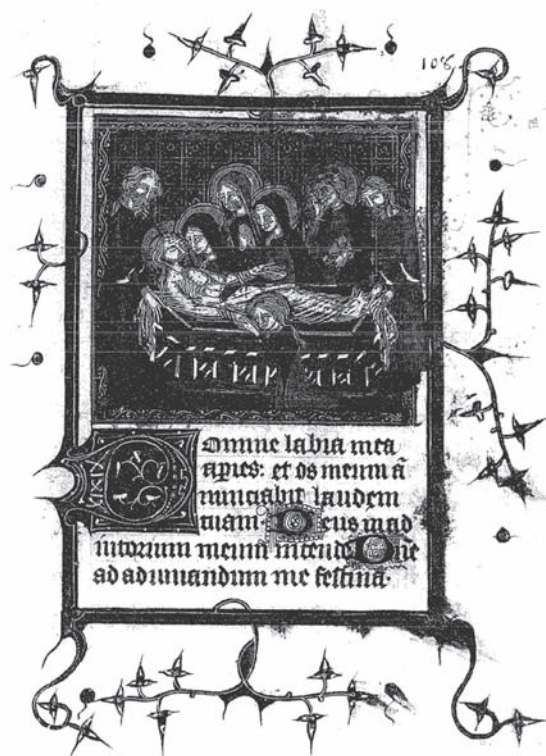 108
Domine labia mea
apies: et os meum ā
nunciabit laudem
tuam· Deus in ad
iutorium meum intende Dñe
ad adiuuandum me festina·